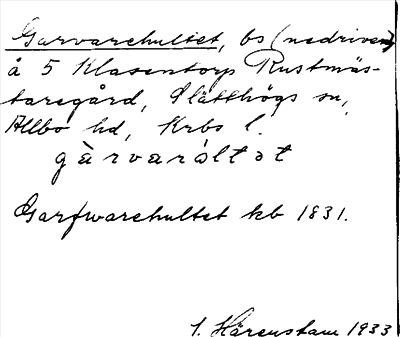 Garvarehultet, bs (nedriven)
å 5 Klasentorps Rustmäs-
taregård, Slätthögs sn,
Allbo hd, Krbs l.
gàrvarúltət
Garfvarehultet kb 1831.
I. Härenstam 1933